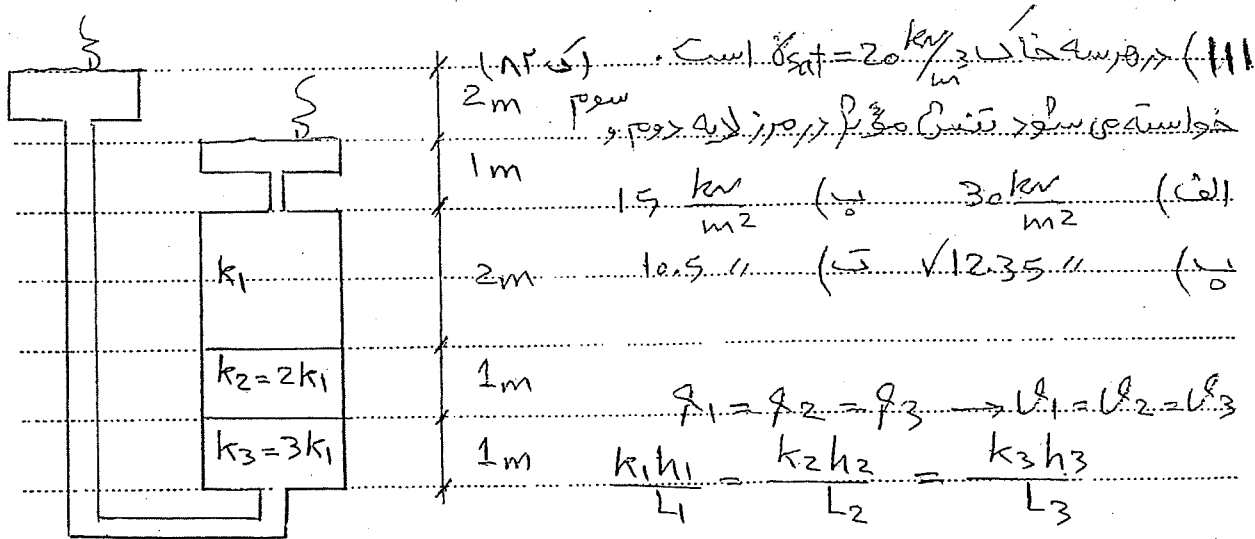 111) در هر سه خاک γsat = 20 kN/m³ است. (آ ۸۲)
خواسته می شود تنش مؤثر در مرز لایه دوم و سوم
الف) 30 kN/m² ب) 15 kN/m²
پ) 12.35 〃 √ ت) 10.5 〃
2m
1m
k₁ 2m
k₂=2k₁ 1m
q₁ = q₂ = q₃ → v₁ = v₂ = v₃
k₃=3k₁ 1m
k₁h₁/L₁ = k₂h₂/L₂ = k₃h₃/L₃